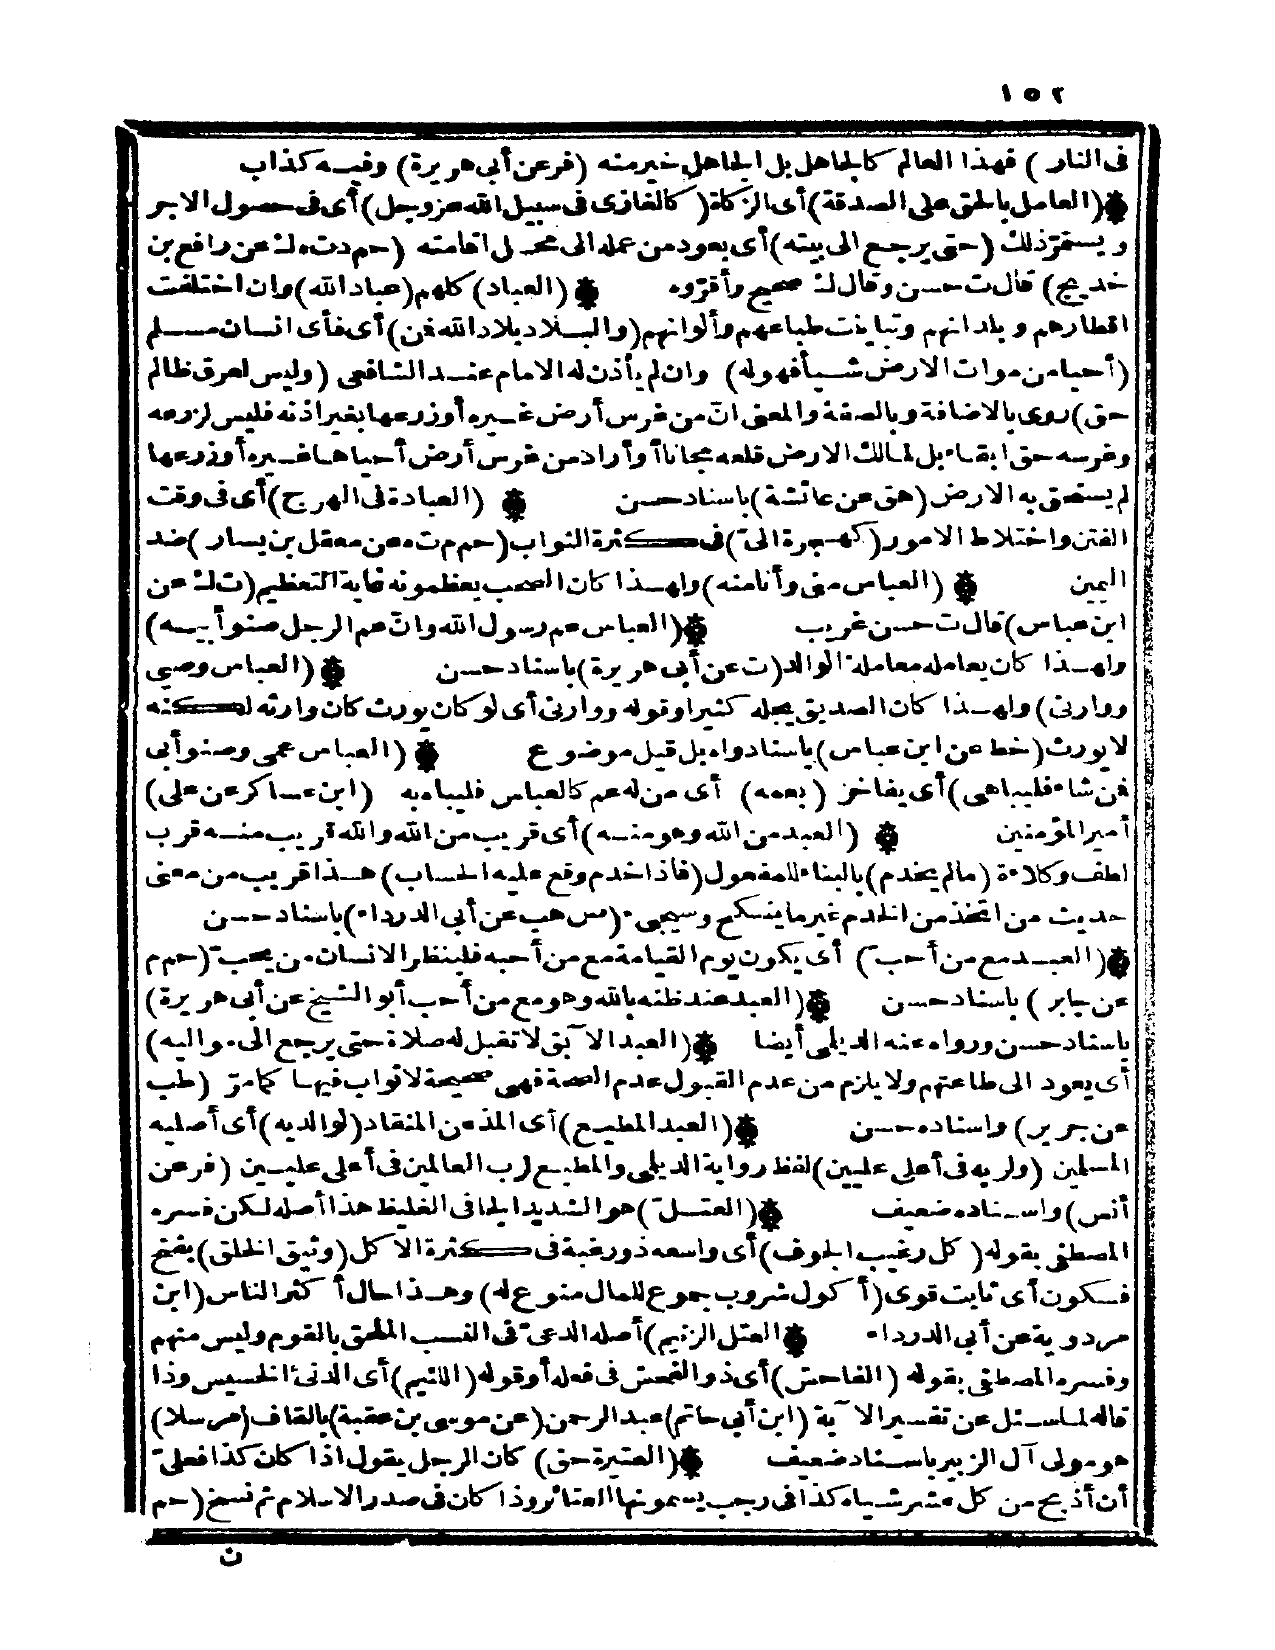 ١٥٢
فى النار) فهذا العالم كالجاهل بل الجاهل خير منه (فر عن أبى هريرة) وفيه كذاب
(العامل بالحق على الصدقة) أى الزكاة (كالغازى فى سبيل الله عز وجل) أى فى حصول الاجر
ويستمر ذلك (حتى يرجع الى بيته) أى يعود من عمله الى محل اقامته (حم د ت ه ك عن رافع بن
خديج) قال ت حسن وقال ك صحيح وأقروه (العباد) كلهم (عباد الله) وان اختلفت
اقطارهم وبلدانهم وتباينت طباعهم وألوانهم (والبلاد بلاد الله فمن) أى فأى انسان مسلم
(أحيا من موات الارض شيأ فهو له) وان لم يأذن له الامام عند الشافعى (وليس لعرق ظالم
حق) روى بالاضافة وبالصفة والمعنى انّ من غرس أرض غيره أو زرعها بغير اذنه فليس لزرعه
وغرسه حق ابقاء بل لمالك الارض قلعه مجانا أو أراد من غرس أرض أحياها غيره أو زرعها
لم يستحق به الارض (هق عن عائشة) باسناد حسن (العبادة فى الهرج) أى فى وقت
الفتن واختلاط الامور (كهجرة الىّ) فى كثرة الثواب (حم م ت ه عن معقل بن يسار) ضد
اليمين (العباس منى وأنا منه) ولهذا كان الصحب يعظمونه غاية التعظيم (ت ك عن
ابن عباس) قال ت حسن غريب (العباس عم رسول الله وانّ عم الرجل صنو أبيه)
ولهذا كان يعامله معاملة الوالد (ت عن أبى هريرة) باسناد حسن (العباس وصى
ووارثى) ولهذا كان الصديق يجله كثيرا وقوله ووارثى أى لو كان يورث كان وارثه لكنه
لا يورث (خط عن ابن عباس) باسناد واه بل قيل موضوع (العباس عمى وصنو أبى
فمن شاء فليباهى) أى يفاخر (بعمه) أى من له عم كالعباس فليباه به (ابن عساكر عن على)
أمير المؤمنين (العبد من الله وهو منه) أى قريب من الله والله قريب منه قرب
لطف وكلاءة (مالم يخدم) بالبناء للمفعول (فاذا خدم وقع عليه الحساب) هذا قريب من معنى
حديث من اتخذ من الخدم غير ما ينكح وسيجىء (ص هب عن أبى الدرداء) باسناد حسن
(العبد مع من أحب) أى يكون يوم القيامة مع من أحبه فلينظر الانسان من يحبّ (حم م
عن جابر) باسناد حسن (العبد عند ظنه بالله وهو مع من أحب أبو الشيخ عن أبى هريرة)
باسناد حسن ورواه عنه الديلى أيضا (العبد الآبق لا تقبل له صلاة حتى يرجع الى مواليه)
أى يعود الى طاعتهم ولا يلزم من عدم القبول عدم الصحة فهى صحيحة لا ثواب فيها كما مرّ (طب
عن جرير) واسناده حسن (العبد المطيع) أى المذعن المنقاد (لوالديه) أى أصليه
المسلمين (ولربه فى أعلى عليين) لفظ رواية الديلى والمطيع لرب العالمين فى أعلى عليين (فر عن
أنس) واسناده ضعيف (العتلّ) هو الشديد الجافى الغليظ هذا أصله لكن فسره
المصطفى بقوله (كل رغيب الجوف) أى واسعه ذو رغبة فى كثرة الاكل (وثيق الخلق) بفتح
فسكون أى ثابت قوى (أكول شروب جموع للمال منوع له) وهذا حال أكثر الناس (ابن
مردوية عن أبى الدرداء (العتل الزنيم) أصله الدعىّ فى النسب الملحق بالقوم وليس منهم
وفسره المصطفى بقوله (الفاحش) أى ذو الفحش فى فعله أو قوله (اللئيم) أى الدنئ الخسيس وذا
قاله لما سئل عن تفسير الآية (ابن أبى حاتم) عبد الرحمن (عن موسى بن عقبة) بالقاف (مرسلا)
هو مولى آل الزبير باسناد ضعيف (العتيرة حق) كان الرجل يقول اذا كان كذا فعلىّ
أن أذبح من كل عشر شياه كذا فى رجب يسمونها العتائر وذا كان فى صدر الاسلام ثم نسخ (حم
ن